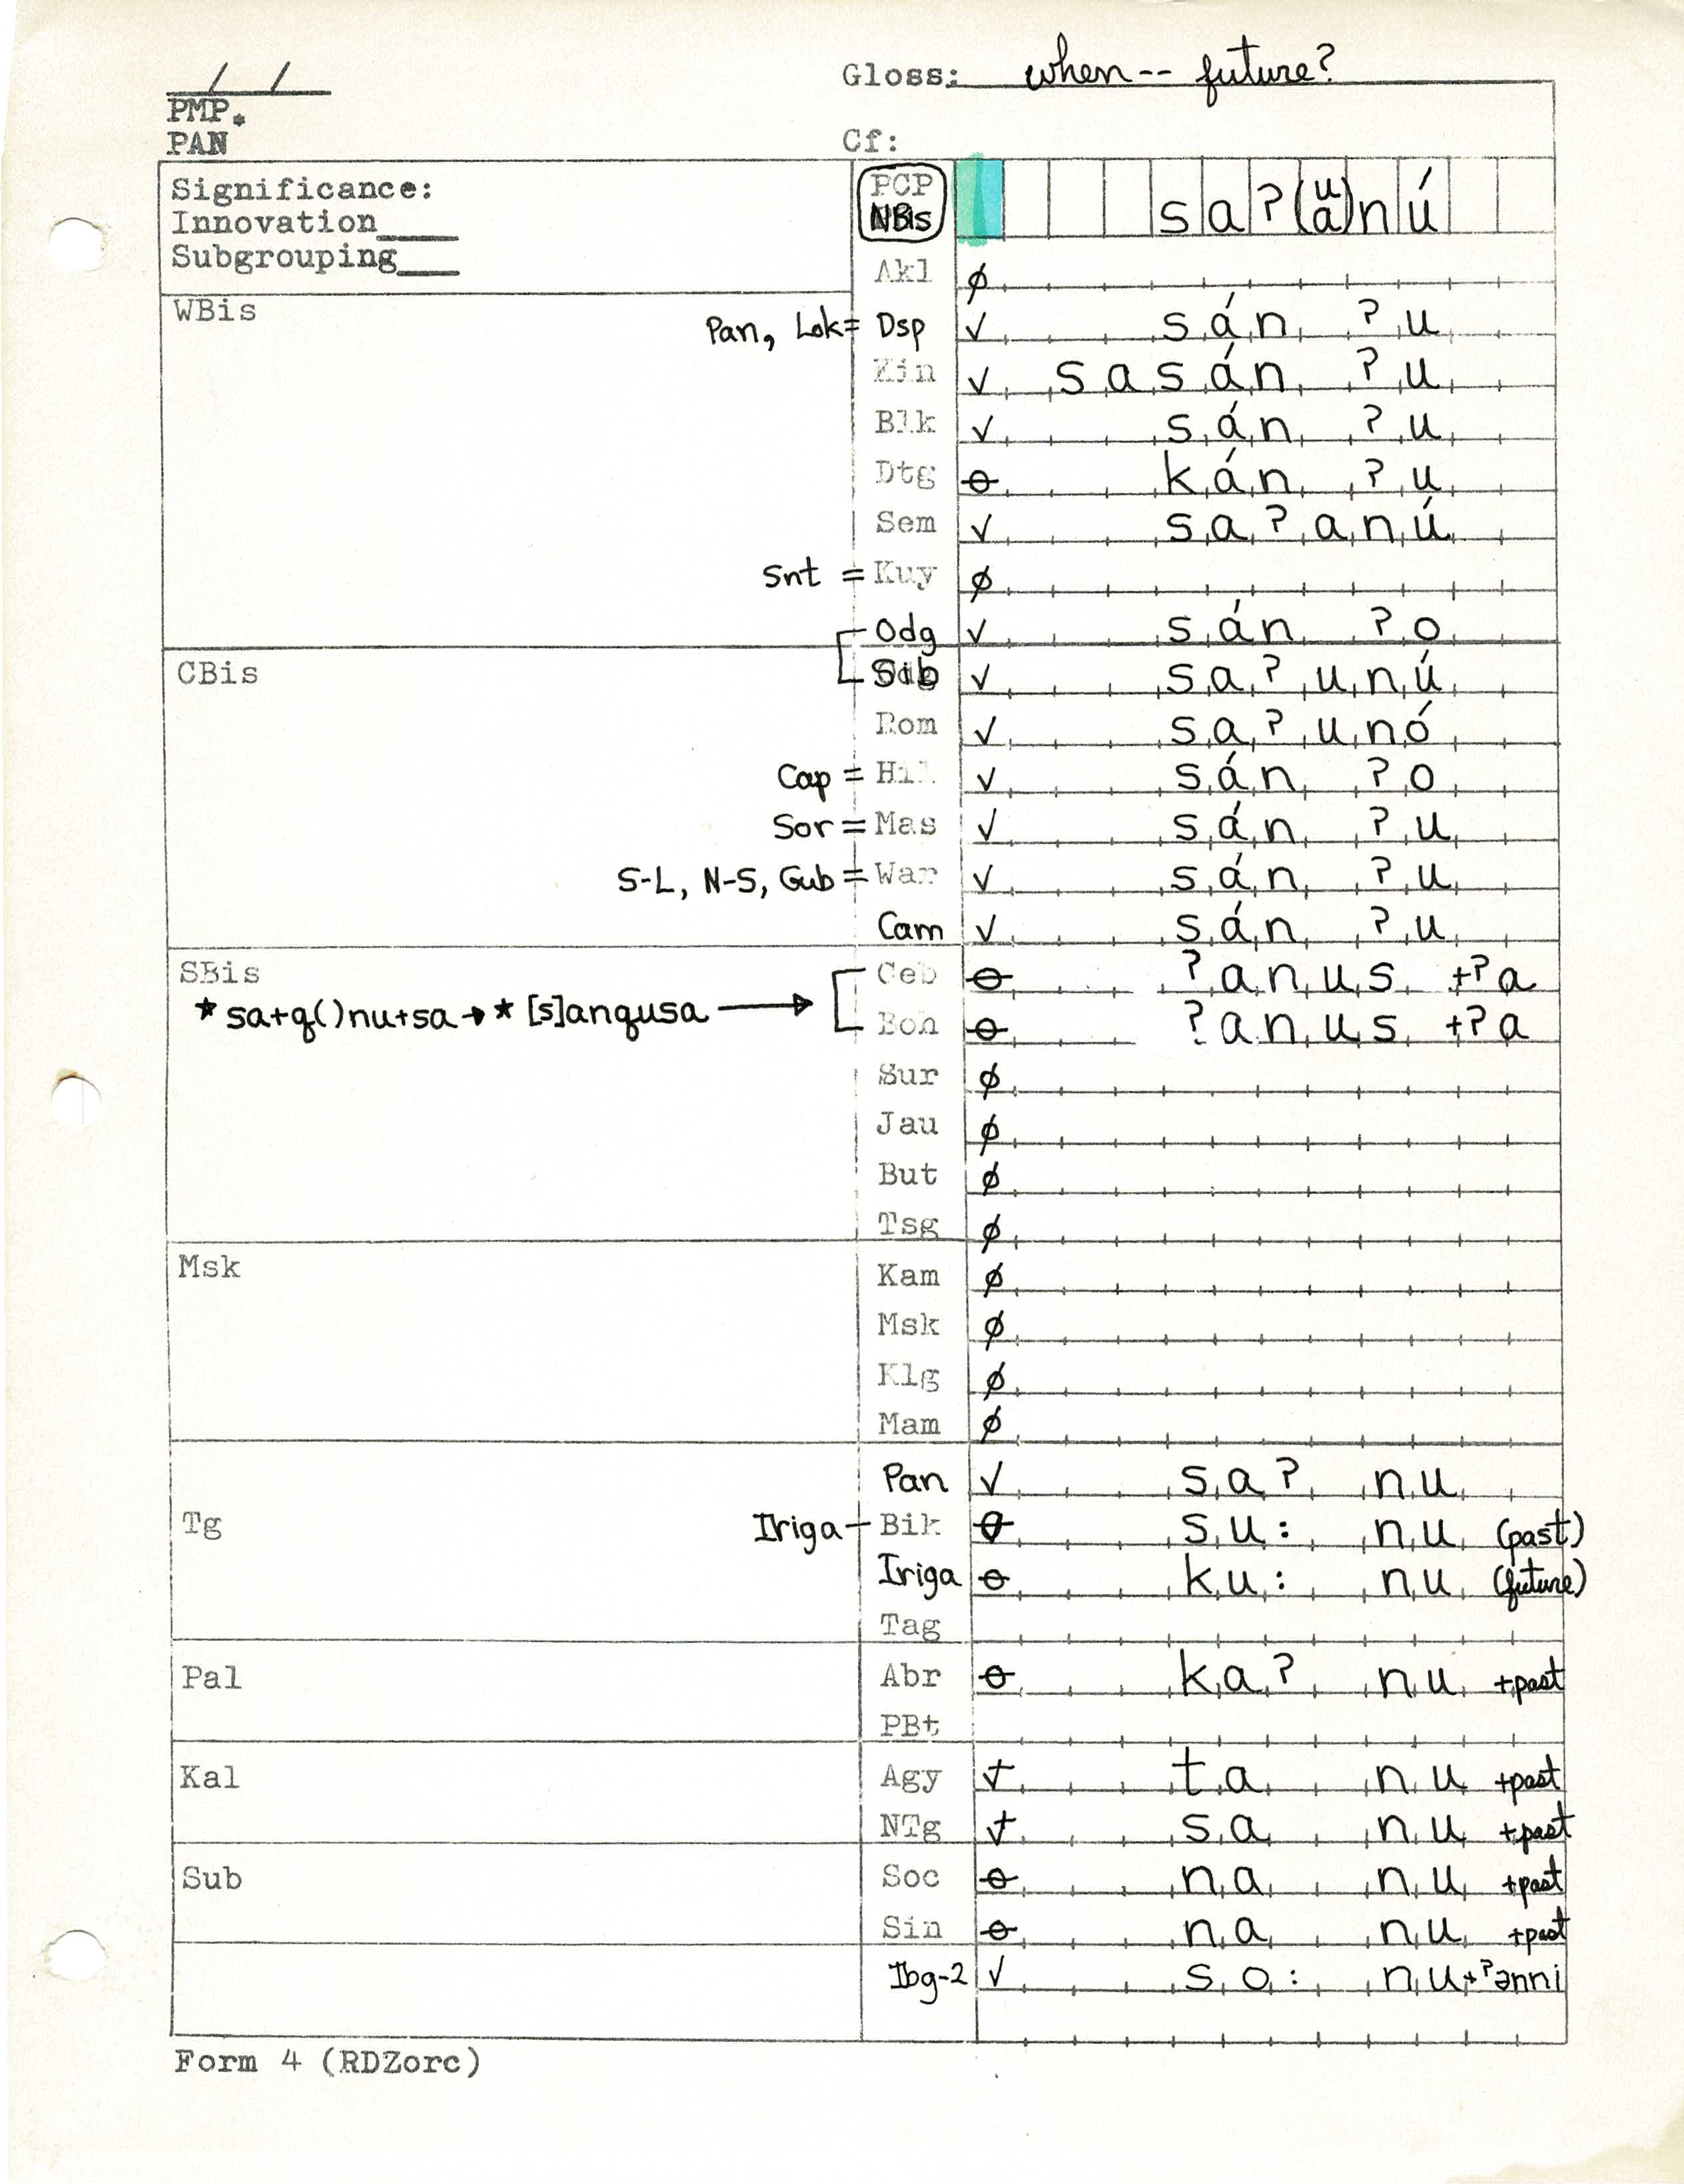 / /
Gloss: when-- future?
PMP.
PAN
Cf:
Significance:
Innovation
Subgrouping
PCP
NBis
sa?(u/a)nú
Akl ø
WBis
Pan, Lok= Dsp √ sán ?u
Kin √ sasán ?u
Blk √ sán ?u
Dtg ⊖ kán ?u
Sem √ sa?anú
Snt = Kuy ø
Odg √ sán ?o
CBis
Sib √ sa?unú
Rom √ sa?unó
Cap = Hil √ sán ?o
Sor = Mas √ sán ?u
S-L, N-S, Gub = War √ sán ?u
Cam √ sán ?u
SBis
Ceb ⊖ ?anus +?a
* sa+q()nu+sa → * [s]anqusa → Boh ⊖ ?anus +?a
Sur ø
Jau ø
But ø
Tsg ø
Msk
Kam ø
Msk ø
Klg ø
Mam ø
Pan √ sa? nu
Tg
Iriga - Bik ⊖ su: nu (past)
Iriga ⊖ ku: nu (future)
Tag
Pal
Abr ⊖ ka? nu +past
PBt
Kal
Agy √ ta nu +past
NTg √ sa nu +past
Sub
Soc ⊖ na nu +past
Sin ⊖ na nu +past
Ibg-2 √ so: nu+?ənni
Form 4 (RDZorc)